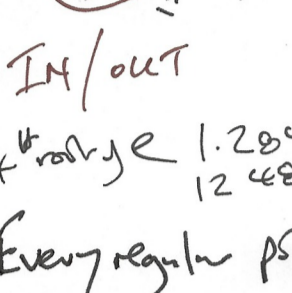 IN/OUT
1.28
12 48
Every regular ps